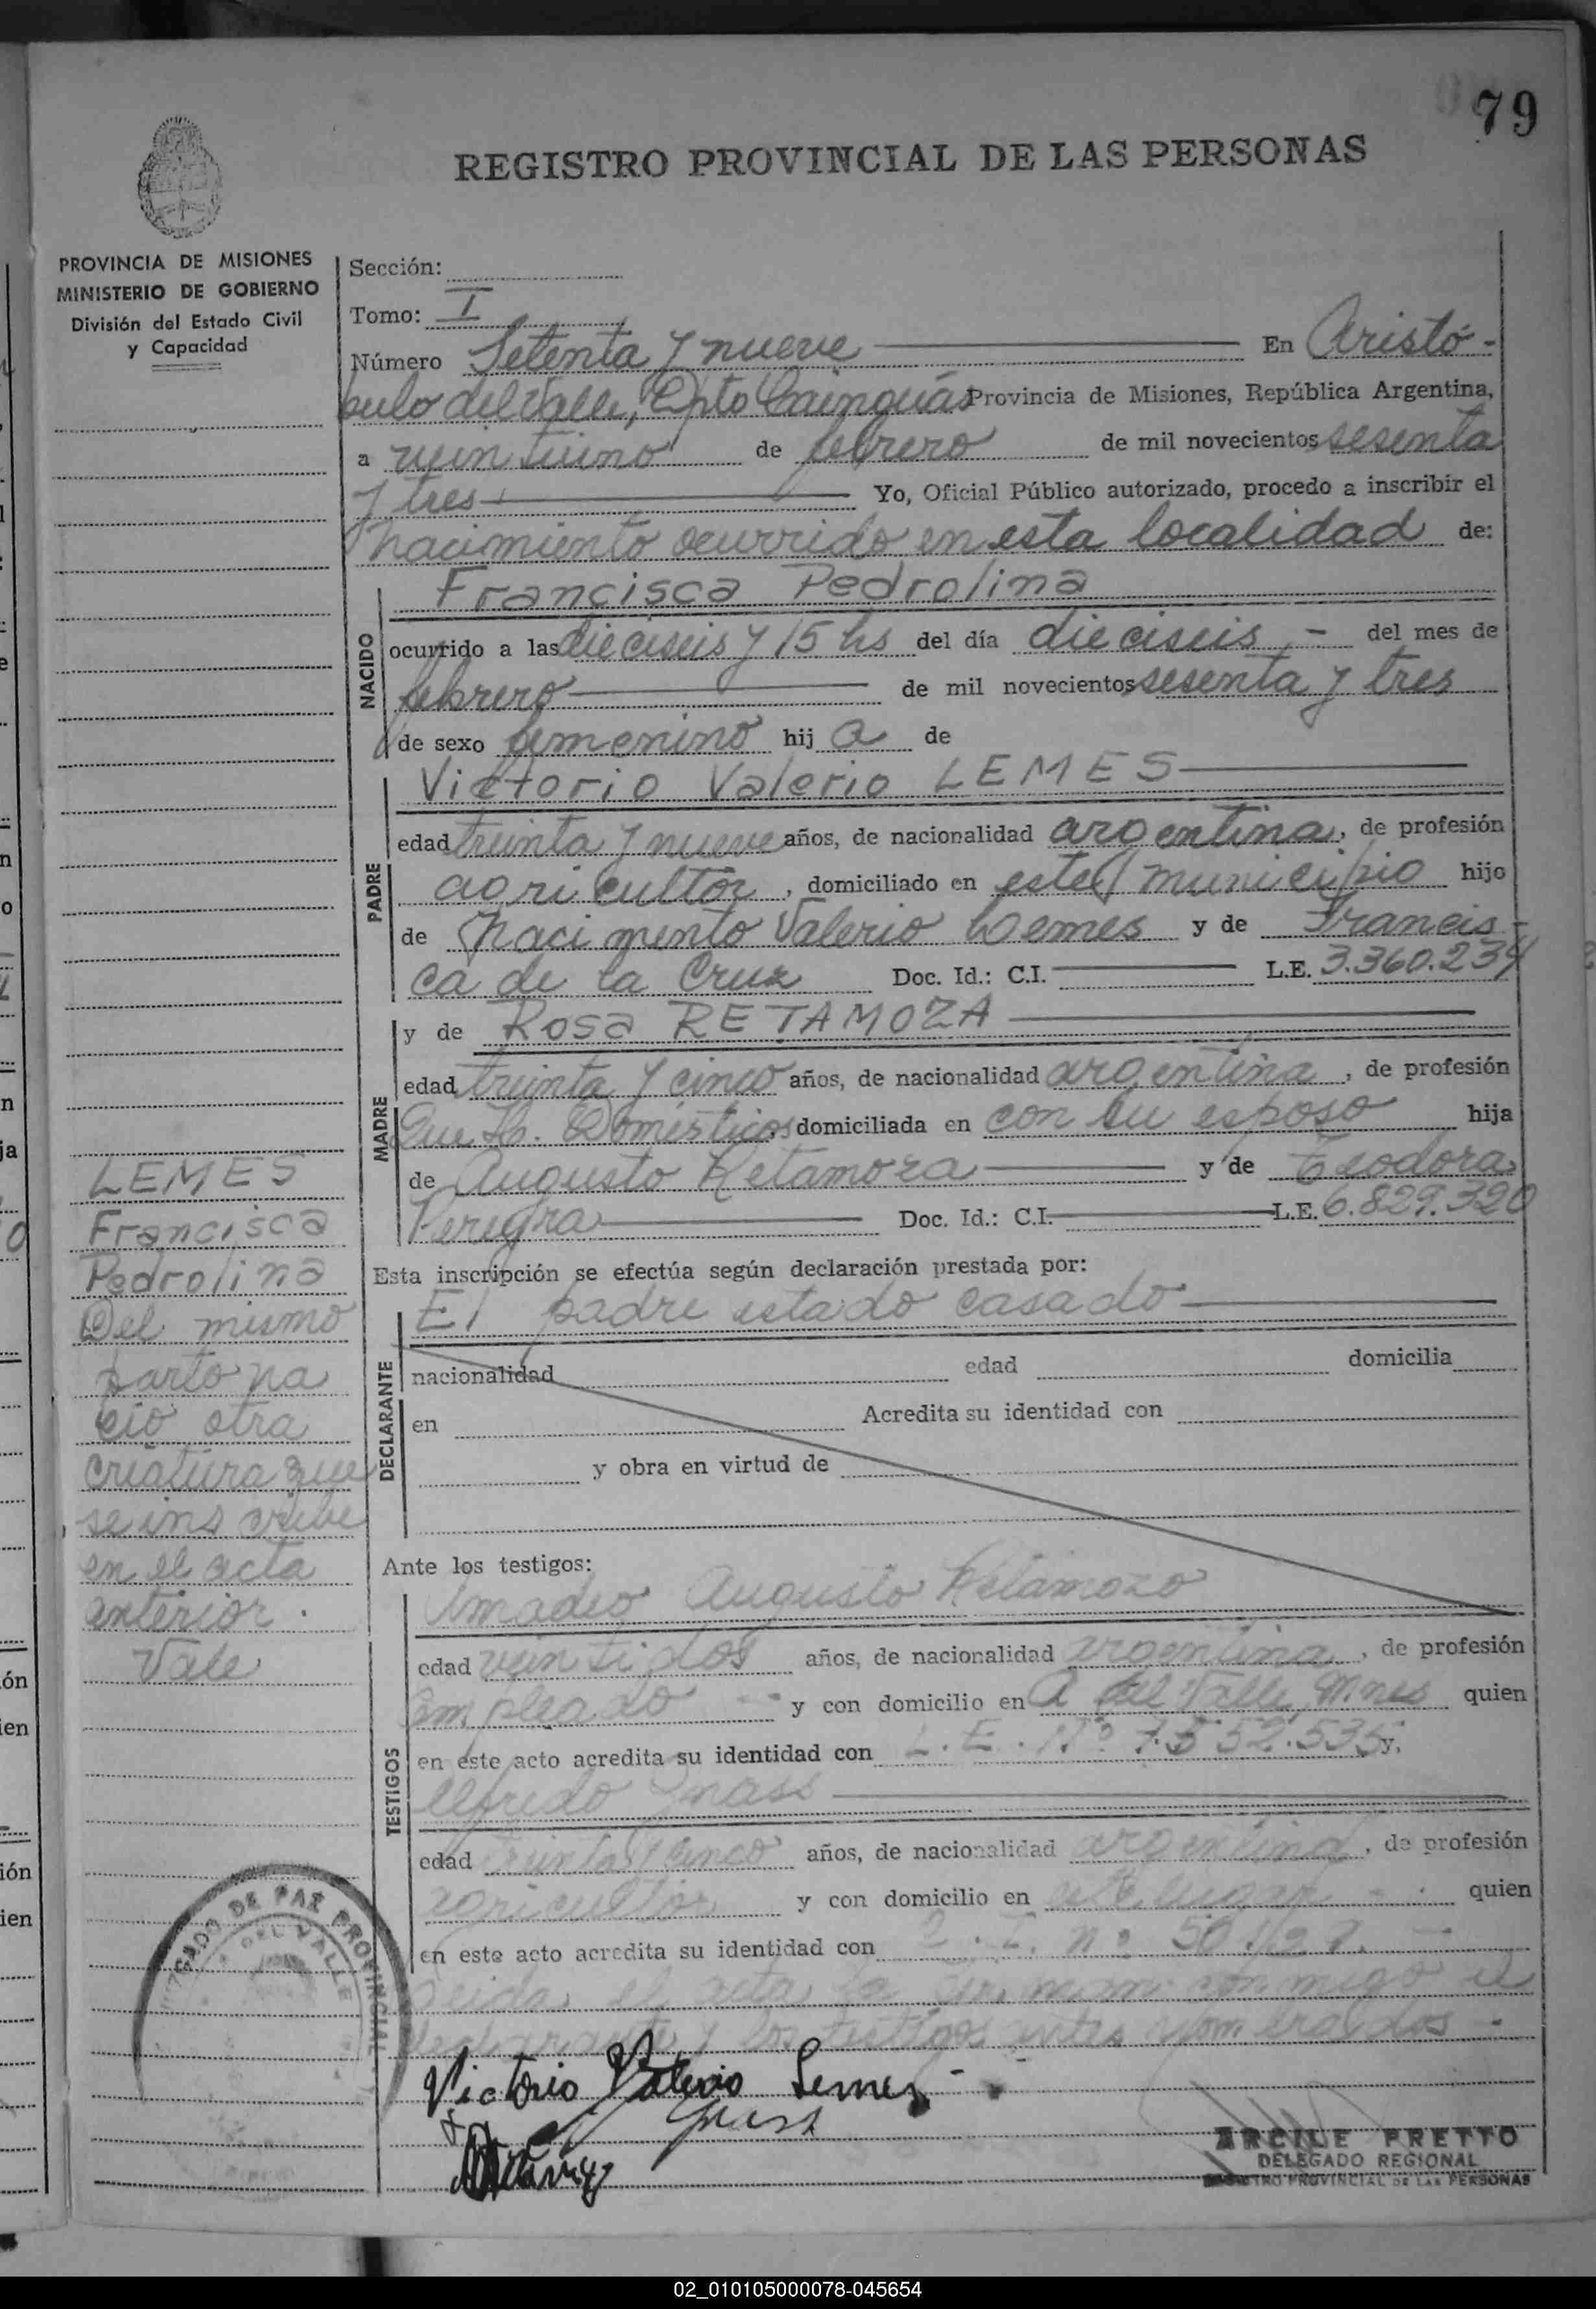 79
REGISTRO PROVINCIAL DE LAS PERSONAS
PROVINCIA DE MISIONES
MINISTERIO DE GOBIERNO
División del Estado Civil
y Capacidad
Sección:
Tomo: I
Número Setenta y nueve En Aristó-
bulo del Valle, Dpto Cainguás Provincia de Misiones, República Argentina,
a veintiuno de febrero de mil novecientos sesenta
y tres Yo, Oficial Público autorizado, procedo a inscribir el
nacimiento ocurrido en esta localidad de:
NACIDO
Francisca Pedrolina
ocurrido a las dieciseis y 15 hs del día dieciseis - del mes de
febrero de mil novecientos sesenta y tres
de sexo femenino hij a de
PADRE
Victorio Valerio LEMES
edad treinta y nueve años, de nacionalidad argentina, de profesión
agricultor, domiciliado en este municipio hijo
de Nacimento Valerio Lemes y de Francis-
ca de la Cruz Doc. Id.: C.I. L.E. 3.360.234
MADRE
y de Rosa RETAMOZA
edad treinta y cinco años, de nacionalidad argentina, de profesión
Que H. Domésticos, domiciliada en con su esposo hija
de Augusto Retamoza y de Teodora
Pereyra Doc. Id.: C.I. L.E. 6.829.320
Esta inscripción se efectúa según declaración prestada por:
DECLARANTE
El padre estado casado
nacionalidad edad domicilia
en Acredita su identidad con
y obra en virtud de
LEMES
Francisca
Pedrolina
Del mismo
parto na
ció otra
criatura que
se inscribe
en el acta
anterior.
Vale
Ante los testigos:
TESTIGOS
Amadeo Augusto Retamozo
edad veintidos años, de nacionalidad argentina, de profesión
empleado y con domicilio en A del Valle Mnes quien
en este acto acredita su identidad con L.E. Nº 7.552.535 y.
Alfredo
edad treinta y cinco años, de nacionalidad argentina, de profesión
agricultor y con domicilio en este lugar quien
en este acto acredita su identidad con nº
Leida el acta la firman conmigo el
declarante y los testigos antes nombrados -
Victorio Valerio Lemes
JUZGADO DE PAZ PROVINCIAL
DEL VALLE
ARCILE PRETTO
DELEGADO REGIONAL
REGISTRO PROVINCIAL DE LAS PERSONAS
02_010105000078-045654